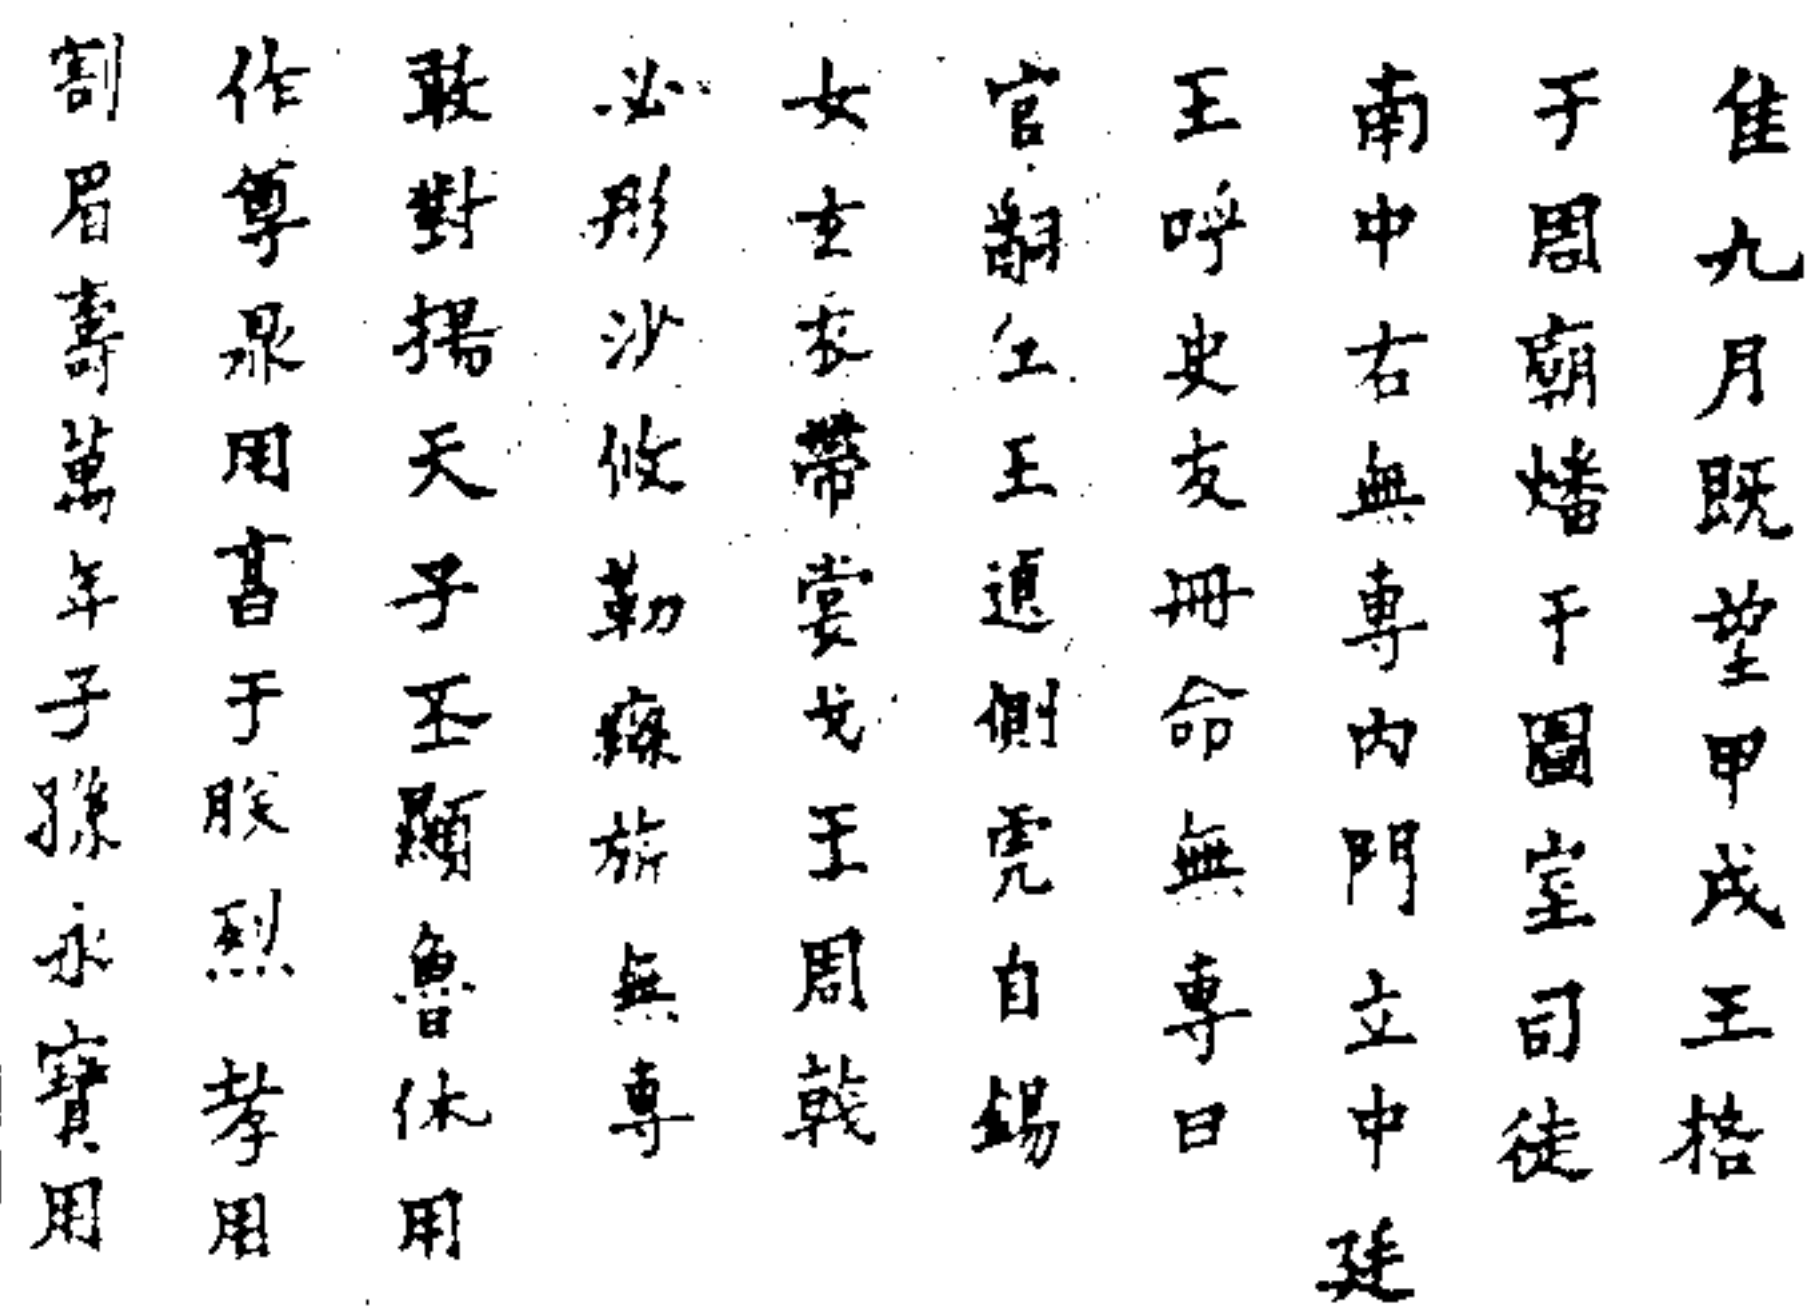 隹九月既望甲戌王格
于周廟燔于圖室司徒
南中右無專內門立中廷
王呼史友冊命無專曰
官嗣紅王逌側虎自錫
女玄衣帶裳戈王周戟
必彤沙攸勒旂無專
敢對揚天子丕顯魯休用
作尊鼎用亯于朕烈孝用
割眉壽萬年子孫永寶用